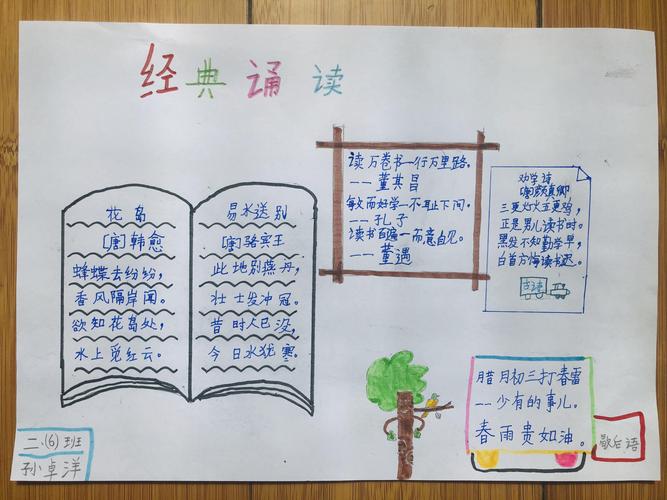 经典诵读
花岛
[唐]韩愈
蜂蝶去纷纷，
香风隔岸闻。
欲知花岛处，
水上觅红云。
易水送别
[唐]骆宾王
此地别燕丹，
壮士发冲冠。
昔时人已没，
今日水犹寒。
读万卷书一行万里路。
--董其昌
敏而好学一不耻下问。
--孔子
读书百遍一而意自见。
--董遇
劝学诗
[唐]颜真卿
三更灯火五更鸡，
正是男儿读书时。
黑发不知勤学早，
白首方悔读书迟。
古诗
腊月初三打春雷
--少有的事儿。
春雨贵如油。
歇后语
二.(6)班
孙卓洋